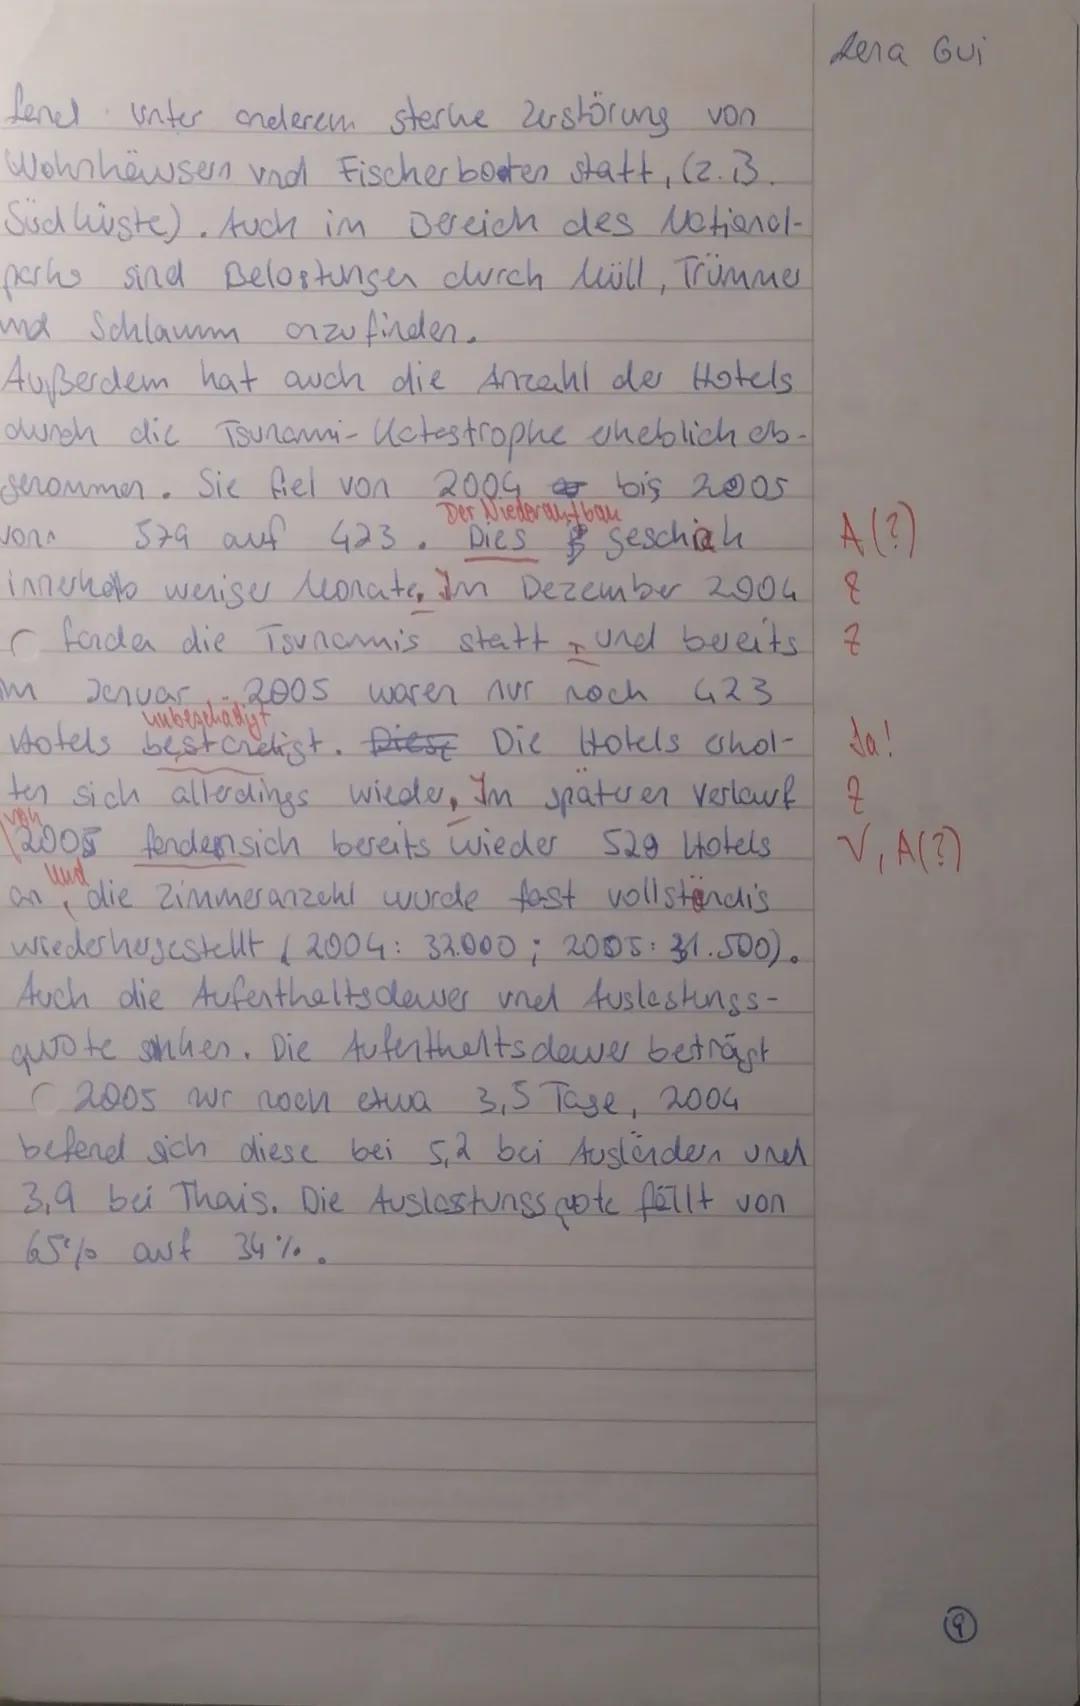 Lena Gui
fand unter anderem starke Zerstörung von
Wohnhäusern und Fischerbooten statt, (z.B.
Südküste). Auch im Bereich des National-
parks sind Belastungen durch Müll, Trümmer
und Schlamm anzufinden.
Außerdem hat auch die Anzahl der Hotels
durch die Tsunami-Katastrophe erheblich ab-
genommen. Sie fiel von 2004 bis 2005
Der Niederaufbau
von 579 auf 423. Dies geschieh A(?)
innerhalb weniger Monate, Im Dezember 2004 Z
fanden die Tsunamis statt, und bereits Z
im Januar 2005 waren nur noch 423
unbeschädigt
Hotels bestandigt. Diese Die Hotels erhol- Ja!
ten sich allerdings wieder, Im späteren Verlauf Z
von
2005 fanden sich bereits wieder 529 Hotels V, A(?)
und
an, die Zimmeranzahl wurde fast vollständig
wiederhergestellt (2004: 32.000; 2005: 31.500).
Auch die Aufenthaltsdauer und Auslastungs-
quote sinken. Die Aufenthaltsdauer beträgt
2005 nur noch etwa 3,5 Tage, 2004
befand sich diese bei 5,2 bei Ausländern und
3,9 bei Thais. Die Auslastungsquote fällt von
65% auf 34%.
9